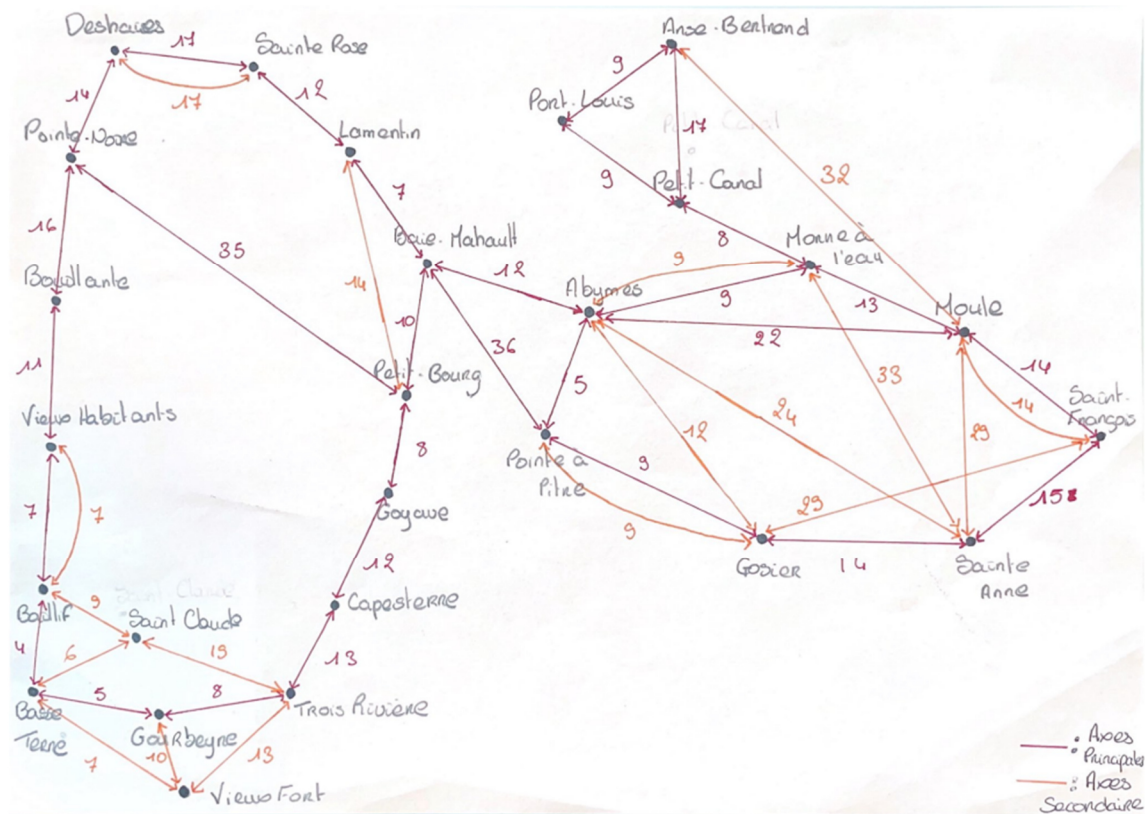 Deshaies
17
Sainte Rose
17
14
12
Pointe-Noire
Lamentin
7
16
35
14
Baie-Mahault
Bouillante
10
12
11
36
Petit-Bourg
Vieux Habitants
8
7
7
Goyave
12
Baillif
9
Saint Claude
Capesterne
4
6
19
13
5
8
Basse
Terre
Gourbeyre
Trois Rivière
7
10
13
Vieux Fort
Anse-Bertrand
9
Port-Louis
17
9
Petit-Canal
32
8
Morne à
l'eau
9
Abymes
9
13
Moule
22
5
33
14
24
14
Saint-
François
12
29
Pointe a
Pitre
9
9
29
158
Gosier
14
Sainte
Anne
: Axes
Principales
: Axes
Secondaire